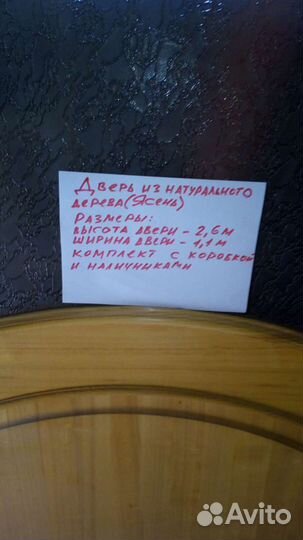 Дверь из натурального
дерева(Ясень)
Размеры:
высота двери - 2,6 м
ширина двери - 1,1 м
комплект с коробкой
и наличниками
Avito